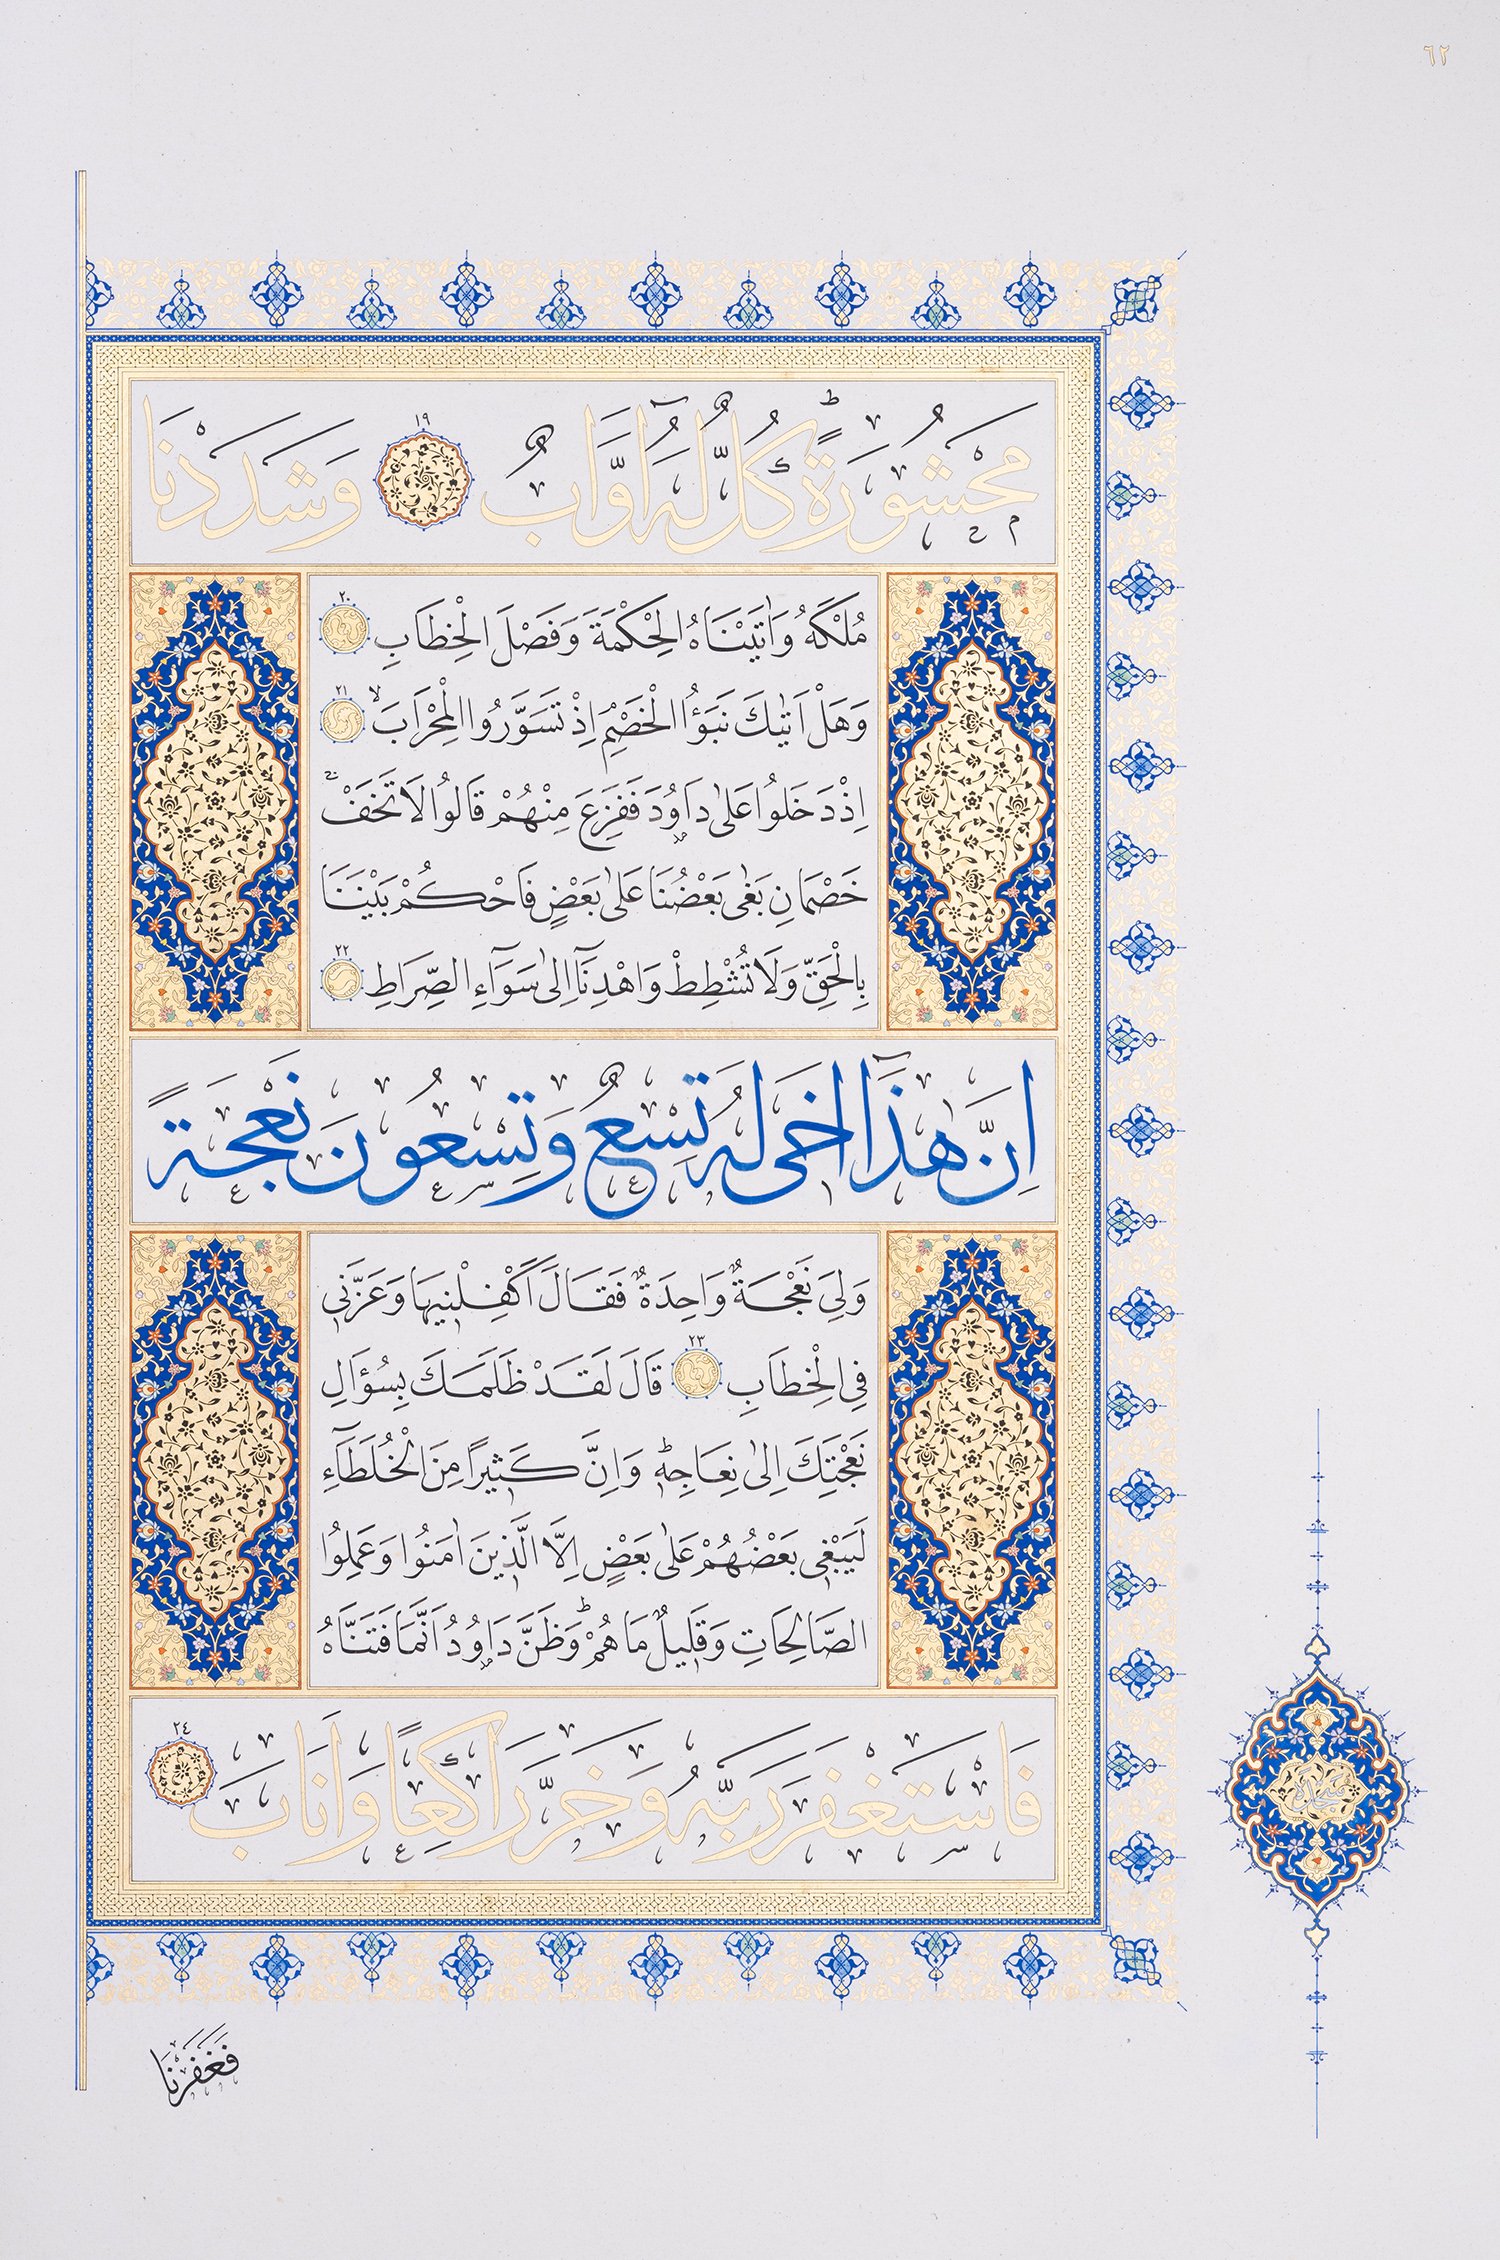 ٦٢
مَحْشُورَةًۜ كُلٌّ لَهُٓ اَوَّابٌ ١٩ وَشَدَدْنَا
مُلْكَهُ وَاٰتَيْنَاهُ الْحِكْمَةَ وَفَصْلَ الْخِطَابِ ٢٠
وَهَلْ اَتٰيكَ نَبَؤُا الْخَصْمِۢ اِذْ تَسَوَّرُوا الْمِحْرَابَۙ ٢١
اِذْ دَخَلُوا عَلٰى دَاوُ۫دَ فَفَزِعَ مِنْهُمْ قَالُوا لَا تَخَفْۚ
خَصْمَانِ بَغٰى بَعْضُنَا عَلٰى بَعْضٍ فَاحْكُمْ بَيْنَنَا
بِالْحَقِّ وَلَا تُشْطِطْ وَاهْدِنَٓا اِلٰى سَوَٓاءِ الصِّرَاطِ ٢٢
اِنَّ هٰذَٓا اَخ۪ي لَهُ تِسْعٌ وَتِسْعُونَ نَعْجَةً
وَلِيَ نَعْجَةٌ وَاحِدَةٌ فَقَالَ اَكْفِلْن۪يهَا وَعَزَّن۪ي
فِي الْخِطَابِ ٢٣ قَالَ لَقَدْ ظَلَمَكَ بِسُؤَالِ
نَعْجَتِكَ اِلٰى نِعَاجِه۪ۜ وَاِنَّ كَث۪يرًا مِنَ الْخُلَطَٓاءِ
لَيَبْغ۪ي بَعْضُهُمْ عَلٰى بَعْضٍ اِلَّا الَّذ۪ينَ اٰمَنُوا وَعَمِلُوا
الصَّالِحَاتِ وَقَل۪يلٌ مَا هُمْۜ وَظَنَّ دَاوُ۫دُ اَنَّمَا فَتَنَّاهُ
فَاسْتَغْفَرَ رَبَّهُ وَخَرَّ رَاكِعًا وَاَنَابَ ٢٤
سجدة
فَغَفَرْنَا